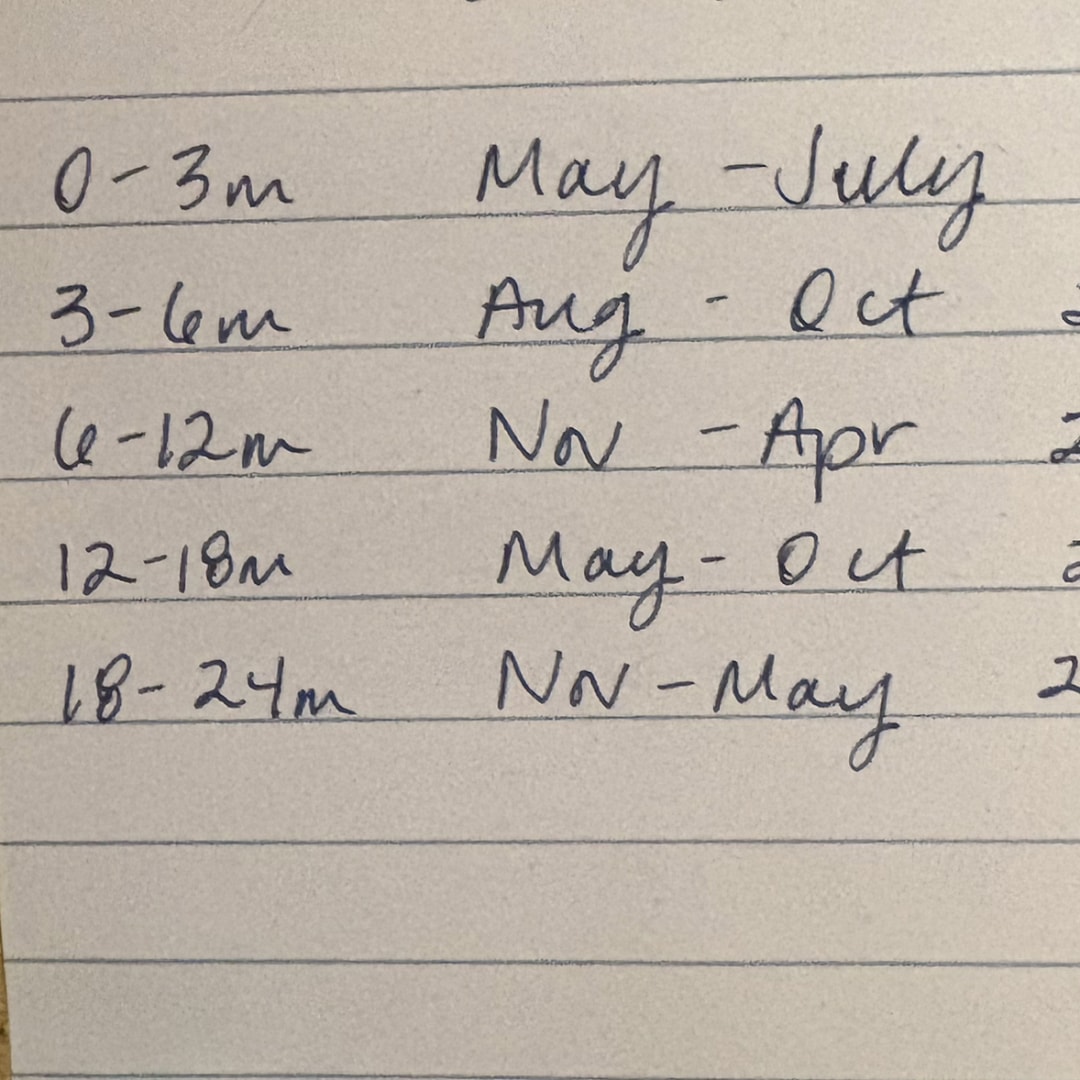 0-3m May - July
3-6m Aug - Oct
6-12m Nov - Apr
12-18m May - Oct
18-24m Nov - May